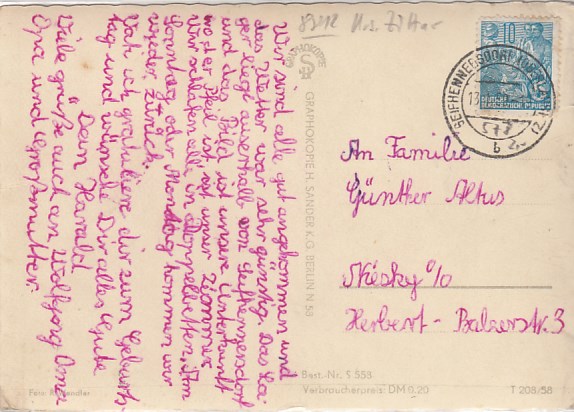 Wir sind alle gut angekommen und
das Wetter war sehr günstig. Das La-
ger liegt auserhalb von Seifhennersdorf
und das Bild ist unsere Unterkunft
wo der Pfeil ist, ist unser Zimmer
Wir schlafen alle in Doppelbetten. Am
Sonntag oder Montag kommen wir
wieder zurück.
Vati ich gratuliere dir zum Geburts-
tag und wünsche Dir alles Gute
Dein Harald
Viele grüße auch an Wolfgang Oma
Opa und Großmutter.
8312 Krs. Zittau
GRAPHOKOPIE
GRAPHOKOPIE H. SANDER K.G. BERLIN N 58
10
DEUTSCHE
DEMOKRATISCHE REPUBLIK
SEIFHENNERSDORF
b
An Familie
Günther Altus
Niésky O/L
Herbert-Balzerstr. 3
Foto:
Best.-Nr. S 558
Verbraucherpreis: DM 0,20
T 208/58